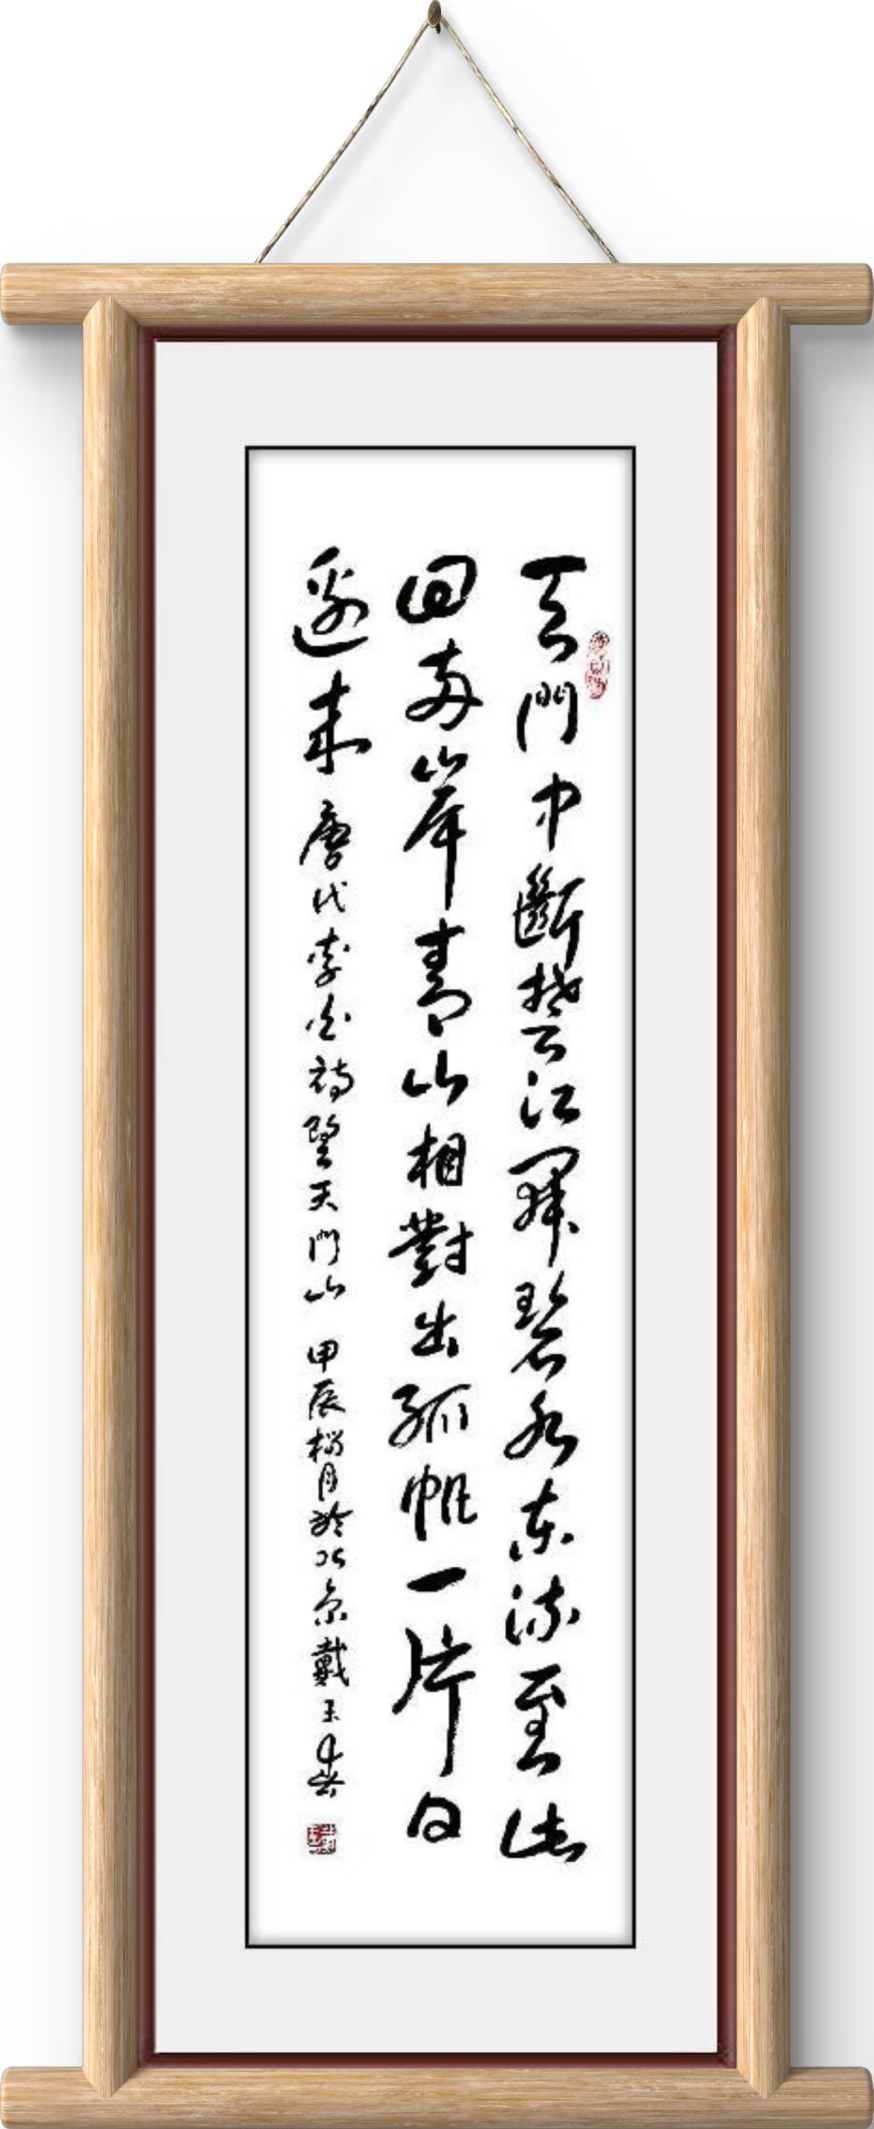 天門中斷楚江開碧水東流至此
回兩岸青山相對出孤帆一片日
邊來 唐代李白詩望天門山 甲辰月於北京戴玉